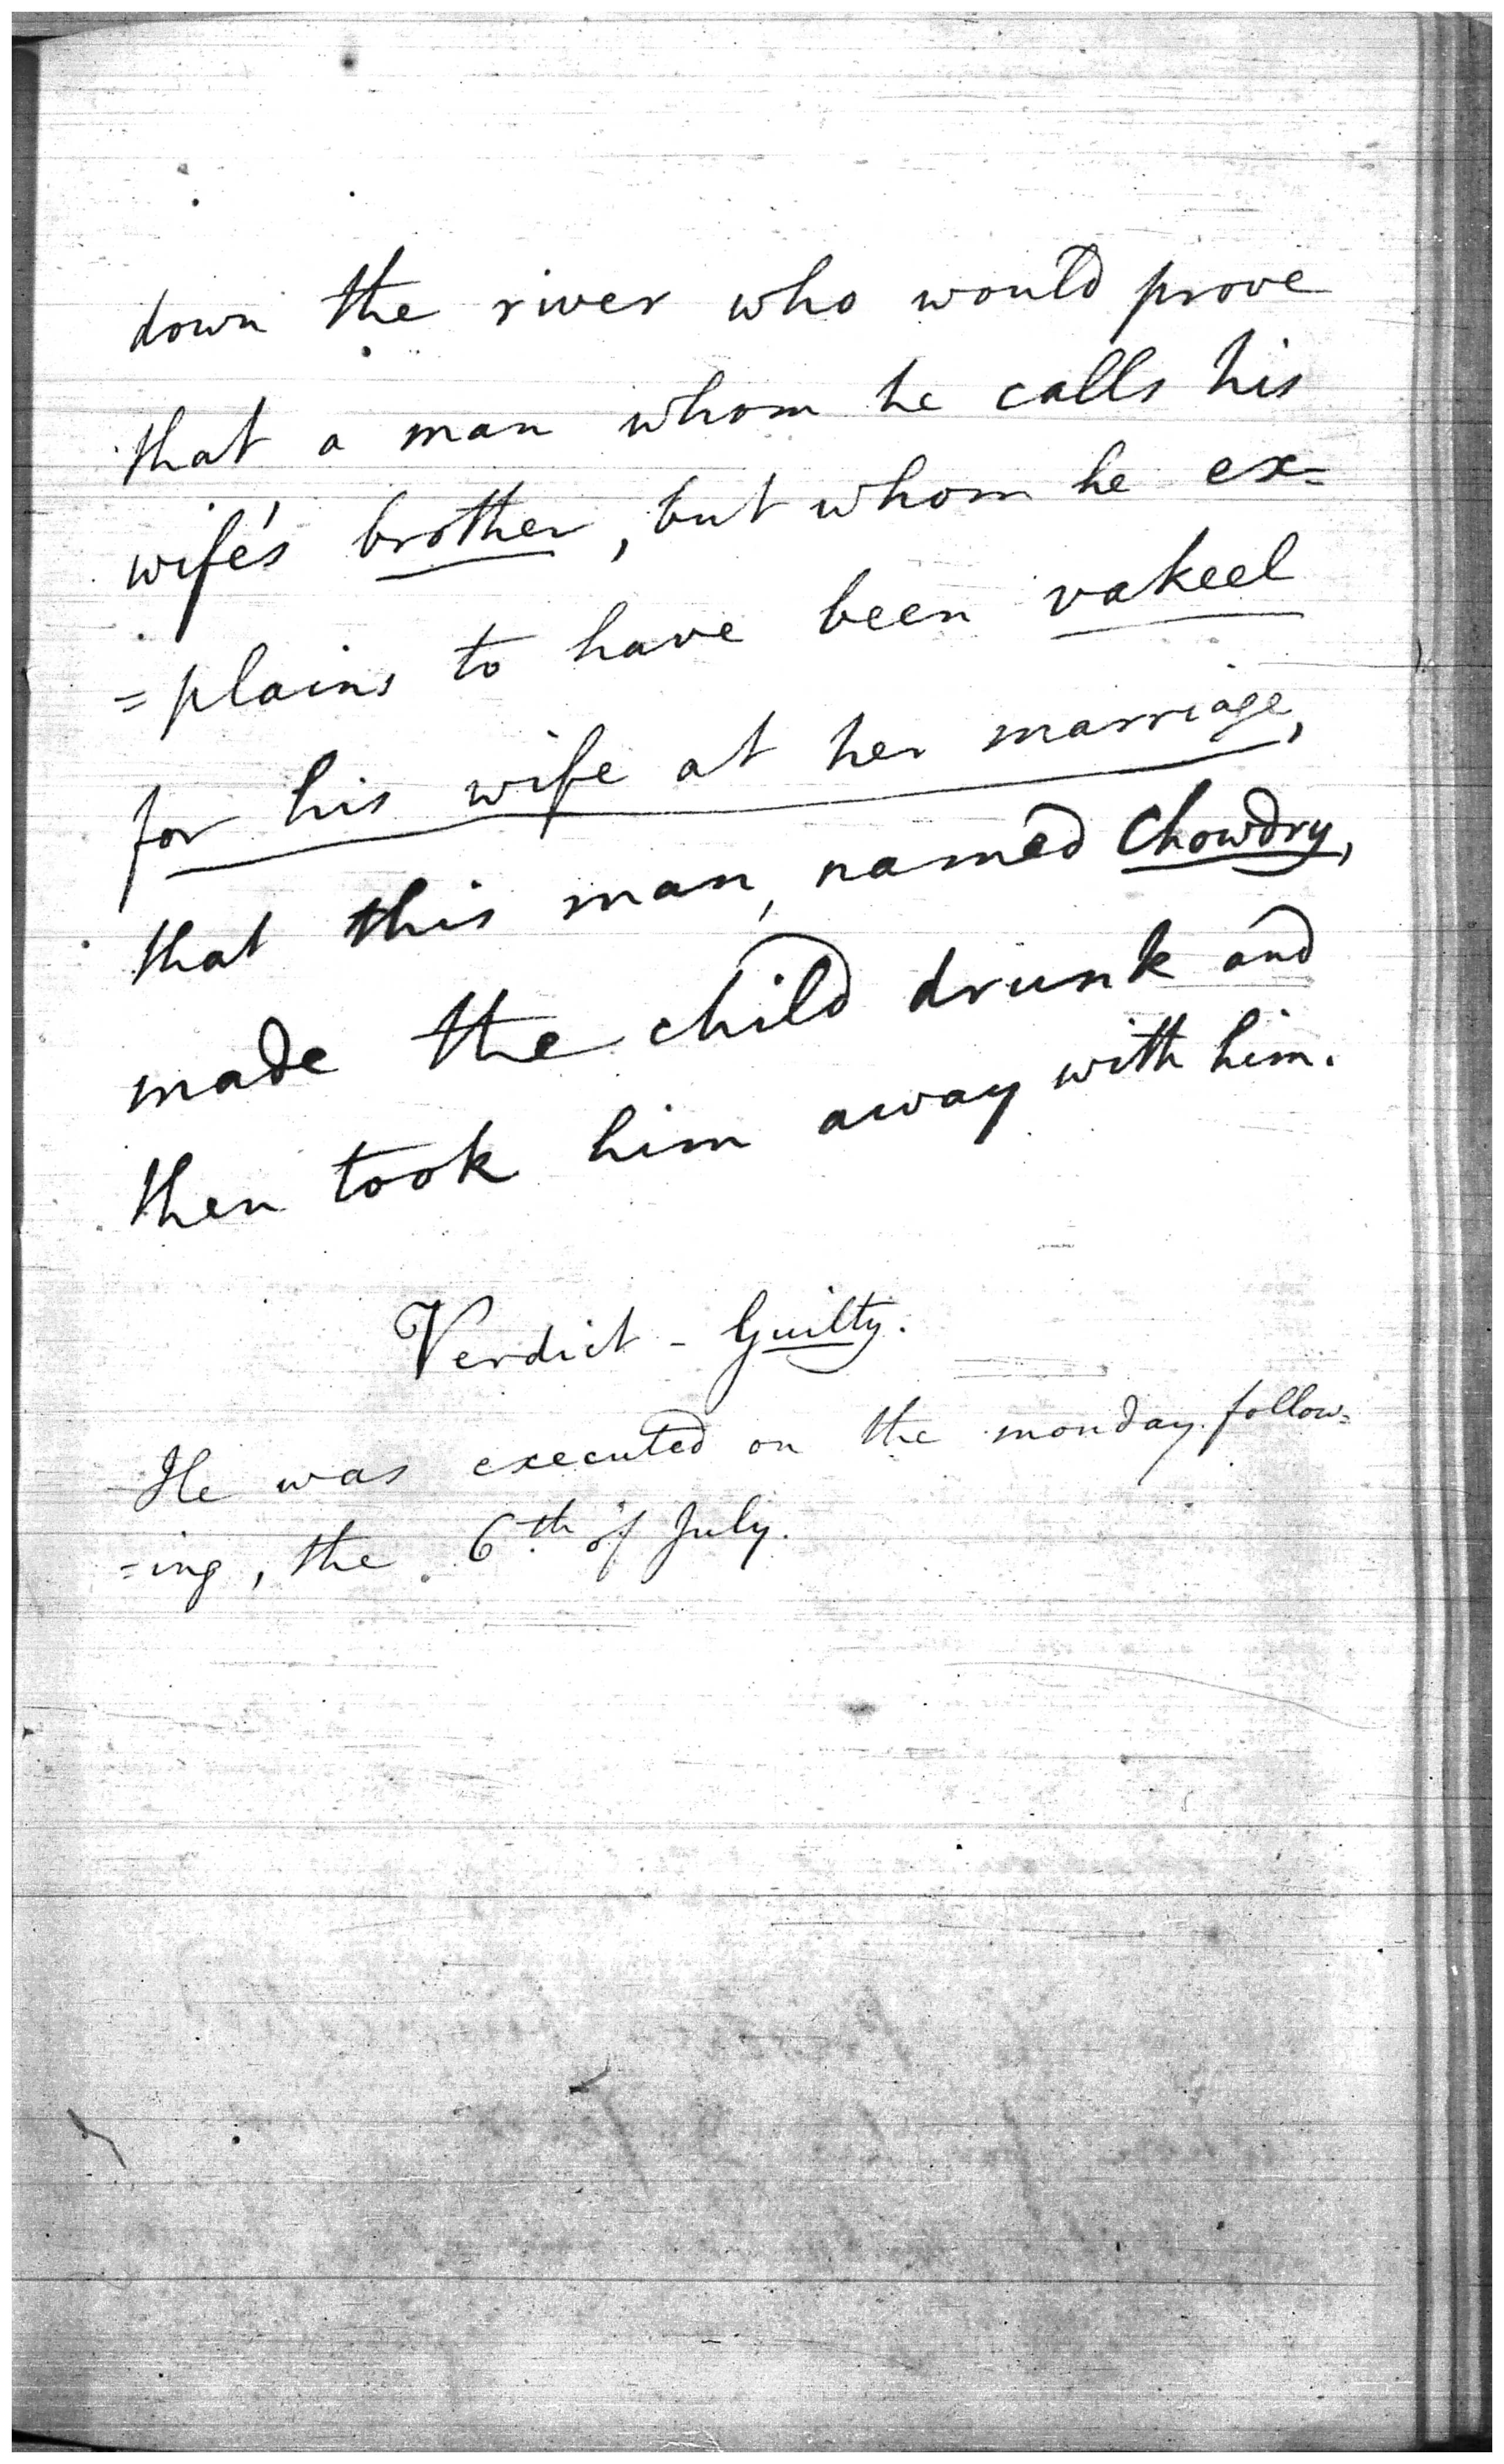 down the river who would prove
that a man whom he calls his
wife's brother, but whom he ex=
=plains to have been vakeel
for his wife at her marriage,
that this man, named Chowdry,
made the child drunk and
then took him away with him.
Verdict - Guilty.
He was executed on the monday follow=
=ing, the 6th of July.